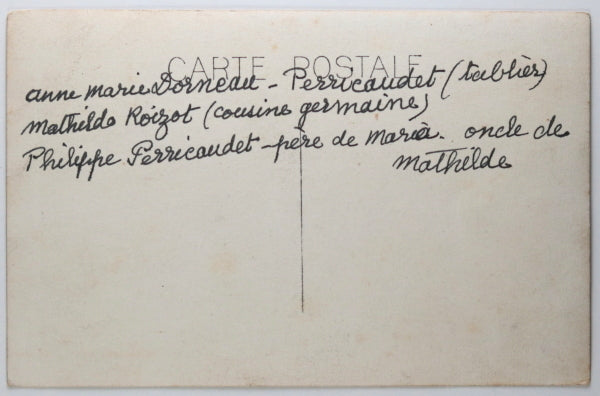 CARTE POSTALE
anne marie Dorneau - Perricaudet (tablier)
Mathilde Roizot (cousine germaine)
Philippe Perricaudet - père de Maria. oncle de
Mathilde